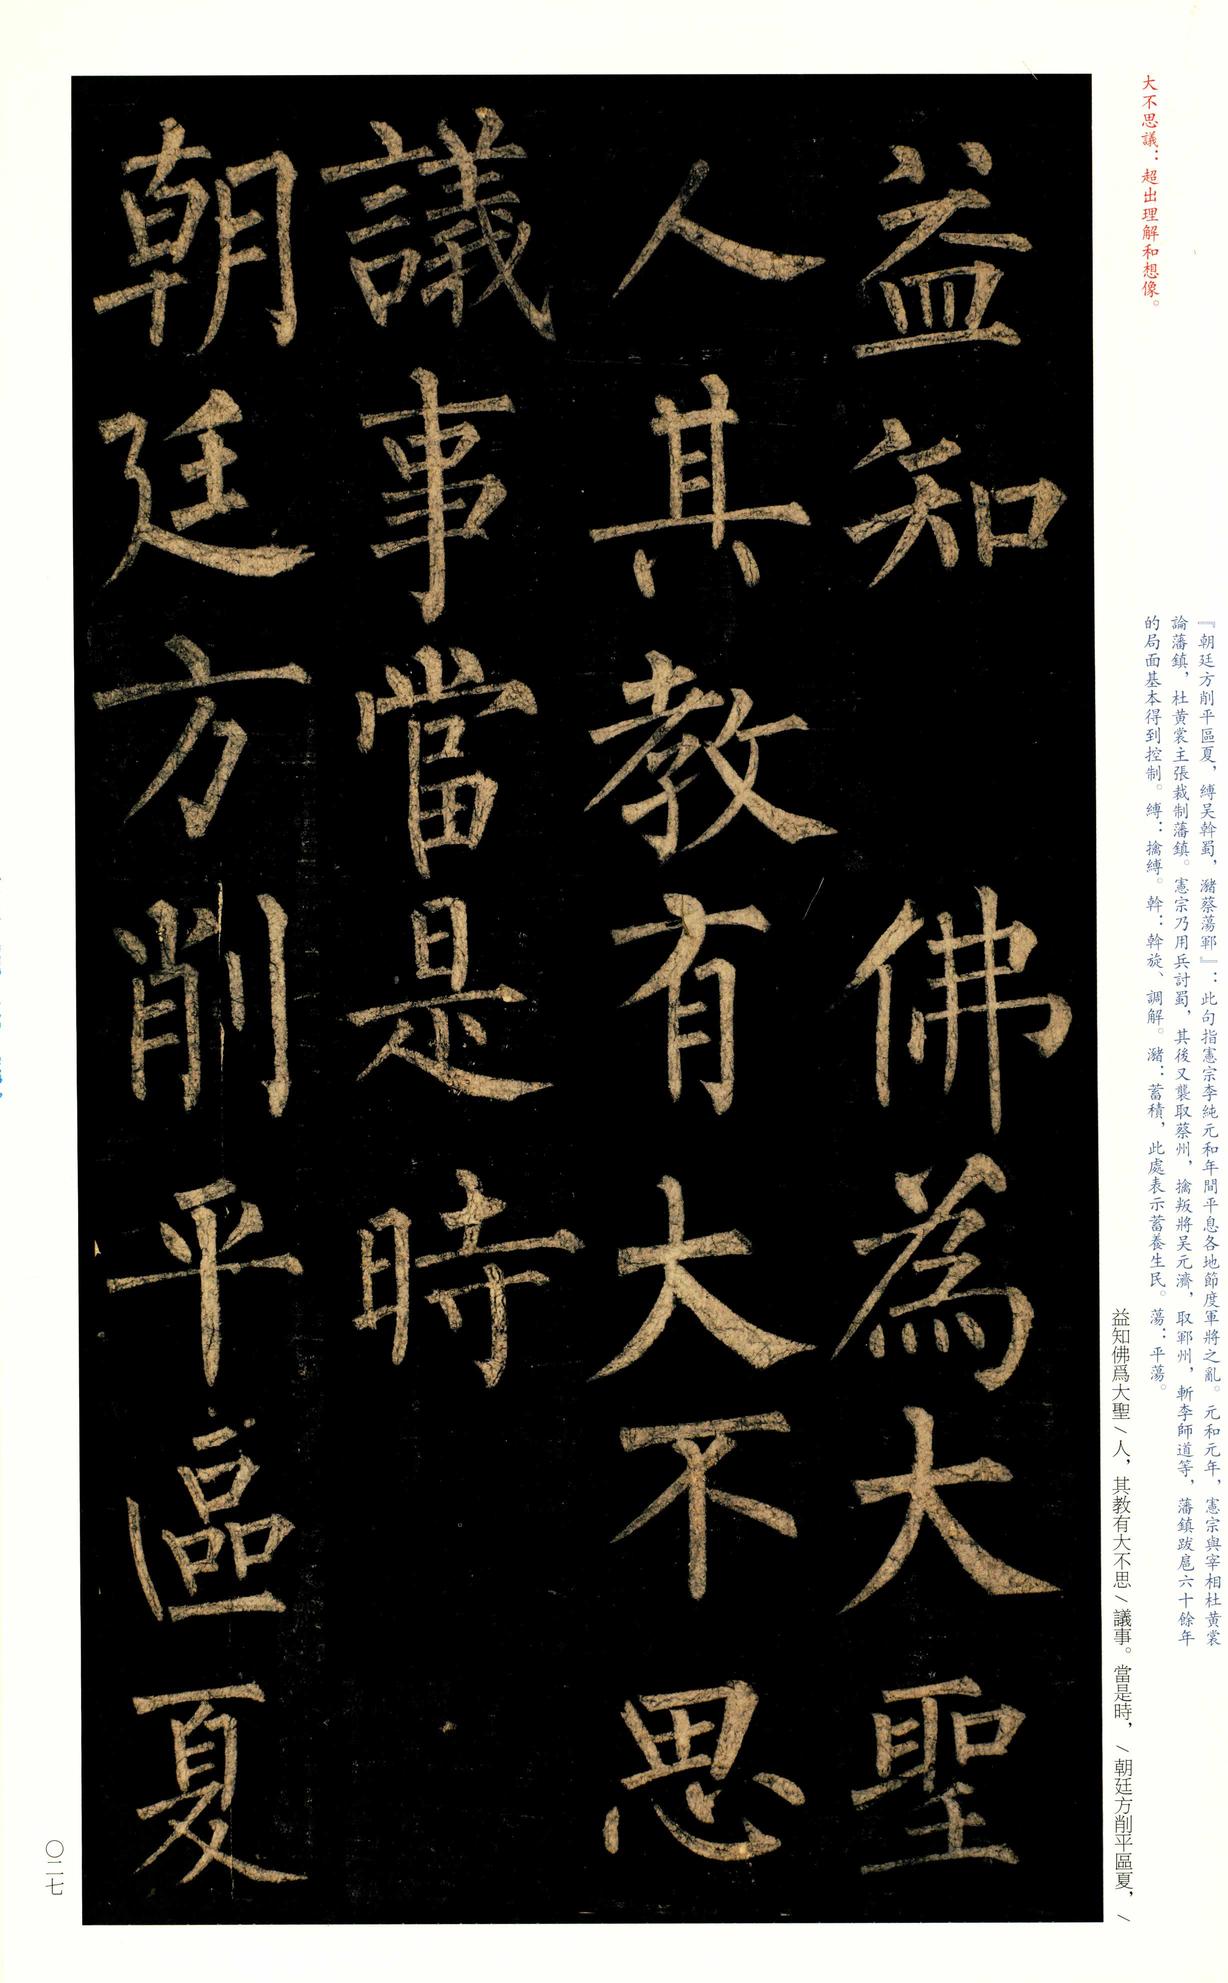 大不思議：超出理解和想像。
『朝廷方削平區夏，縛吴斡蜀，瀦蔡蕩鄆』：此句指憲宗李純元和年間平息各地節度軍將之亂。元和元年，憲宗與宰相杜黄裳
論藩鎮，杜黄裳主張裁制藩鎮。憲宗乃用兵討蜀，其後又襲取蔡州，擒叛將吴元濟，取鄆州，斬李師道等，藩鎮跋扈六十餘年
的局面基本得到控制。縛：擒縛。斡：斡旋、調解。瀦：蓄積，此處表示蓄養生民。蕩：平蕩。
益知佛爲大聖\人，其教有大不思\議事。當是時，\朝廷方削平區夏，\
益知 佛為大聖
人其教有大不思
議事當是時
朝廷方削平區夏
〇二七